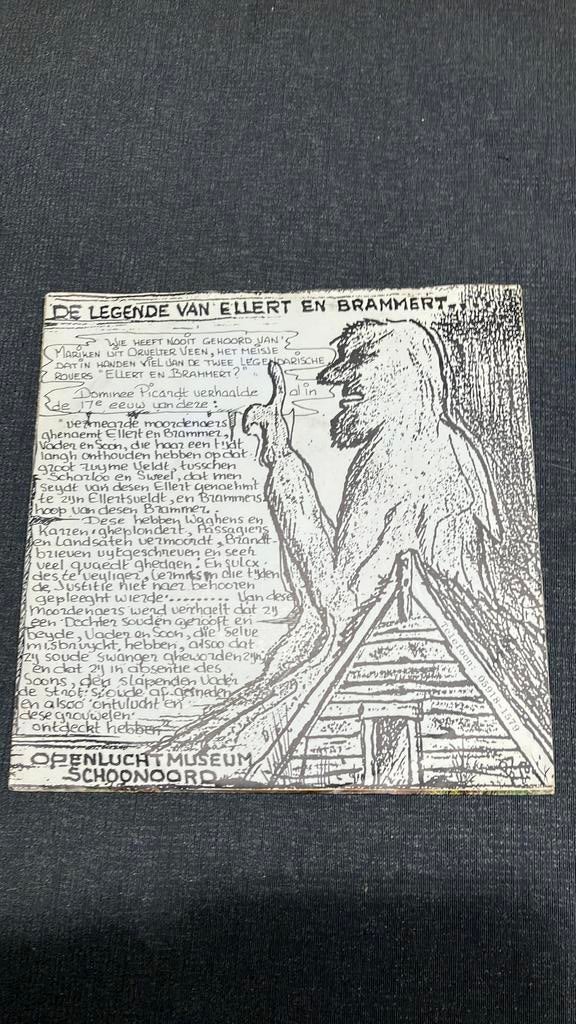 DE LEGENDE VAN ELLERT EN BRAMMERT.....
WIE HEEFT NOOIT GEHOORD VAN
MARIKEN UIT ORVELTER VEEN, HET MEISJE
DAT IN HANDEN VIEL VAN DE TWEE LEGENDARISCHE
ROVERS "ELLERT EN BRAMMERT?"
Dominee Picardt verhaalde al in
de 17e eeuw van deze:
"vermearde moordenaers
ghenaemt Ellert en Brammer,
Vader en Soon, die haer een tydt
langh onthouden hebben op dat
groot ruyme Veldt, tusschen
Schozloo en Sweel, dat men
seydt van desen Ellert genaehmt
te zyn Ellertsveldt, en Brammers
hoop van desen Brammer.
Dese hebben Waghens en
Karren gheplondert, Passagiers
en Landsaten vermoordt, Brandt-
brieven uytgeschreven en seer
veel quaedt ghedaen. En sulcx
des te veyliger, in die tyden
de Justitie niet naer behooren
gepleeght wierde.......... Van dese
moordenaers werd verhaelt dat zy
een Dochter souden gerooft en
beyde, Vader en Soon, die selve
misbruyckt hebben, alsoo dat
zy soude swanger gheworden zyn
en dat zy in absentie des
Soons, den slapenden Vader
de Strot soude af gesneden
en alsoo ontvlucht en
dese grouwelen
ontdeckt hebben"
OPENLUCHTMUSEUM
SCHOONOORD